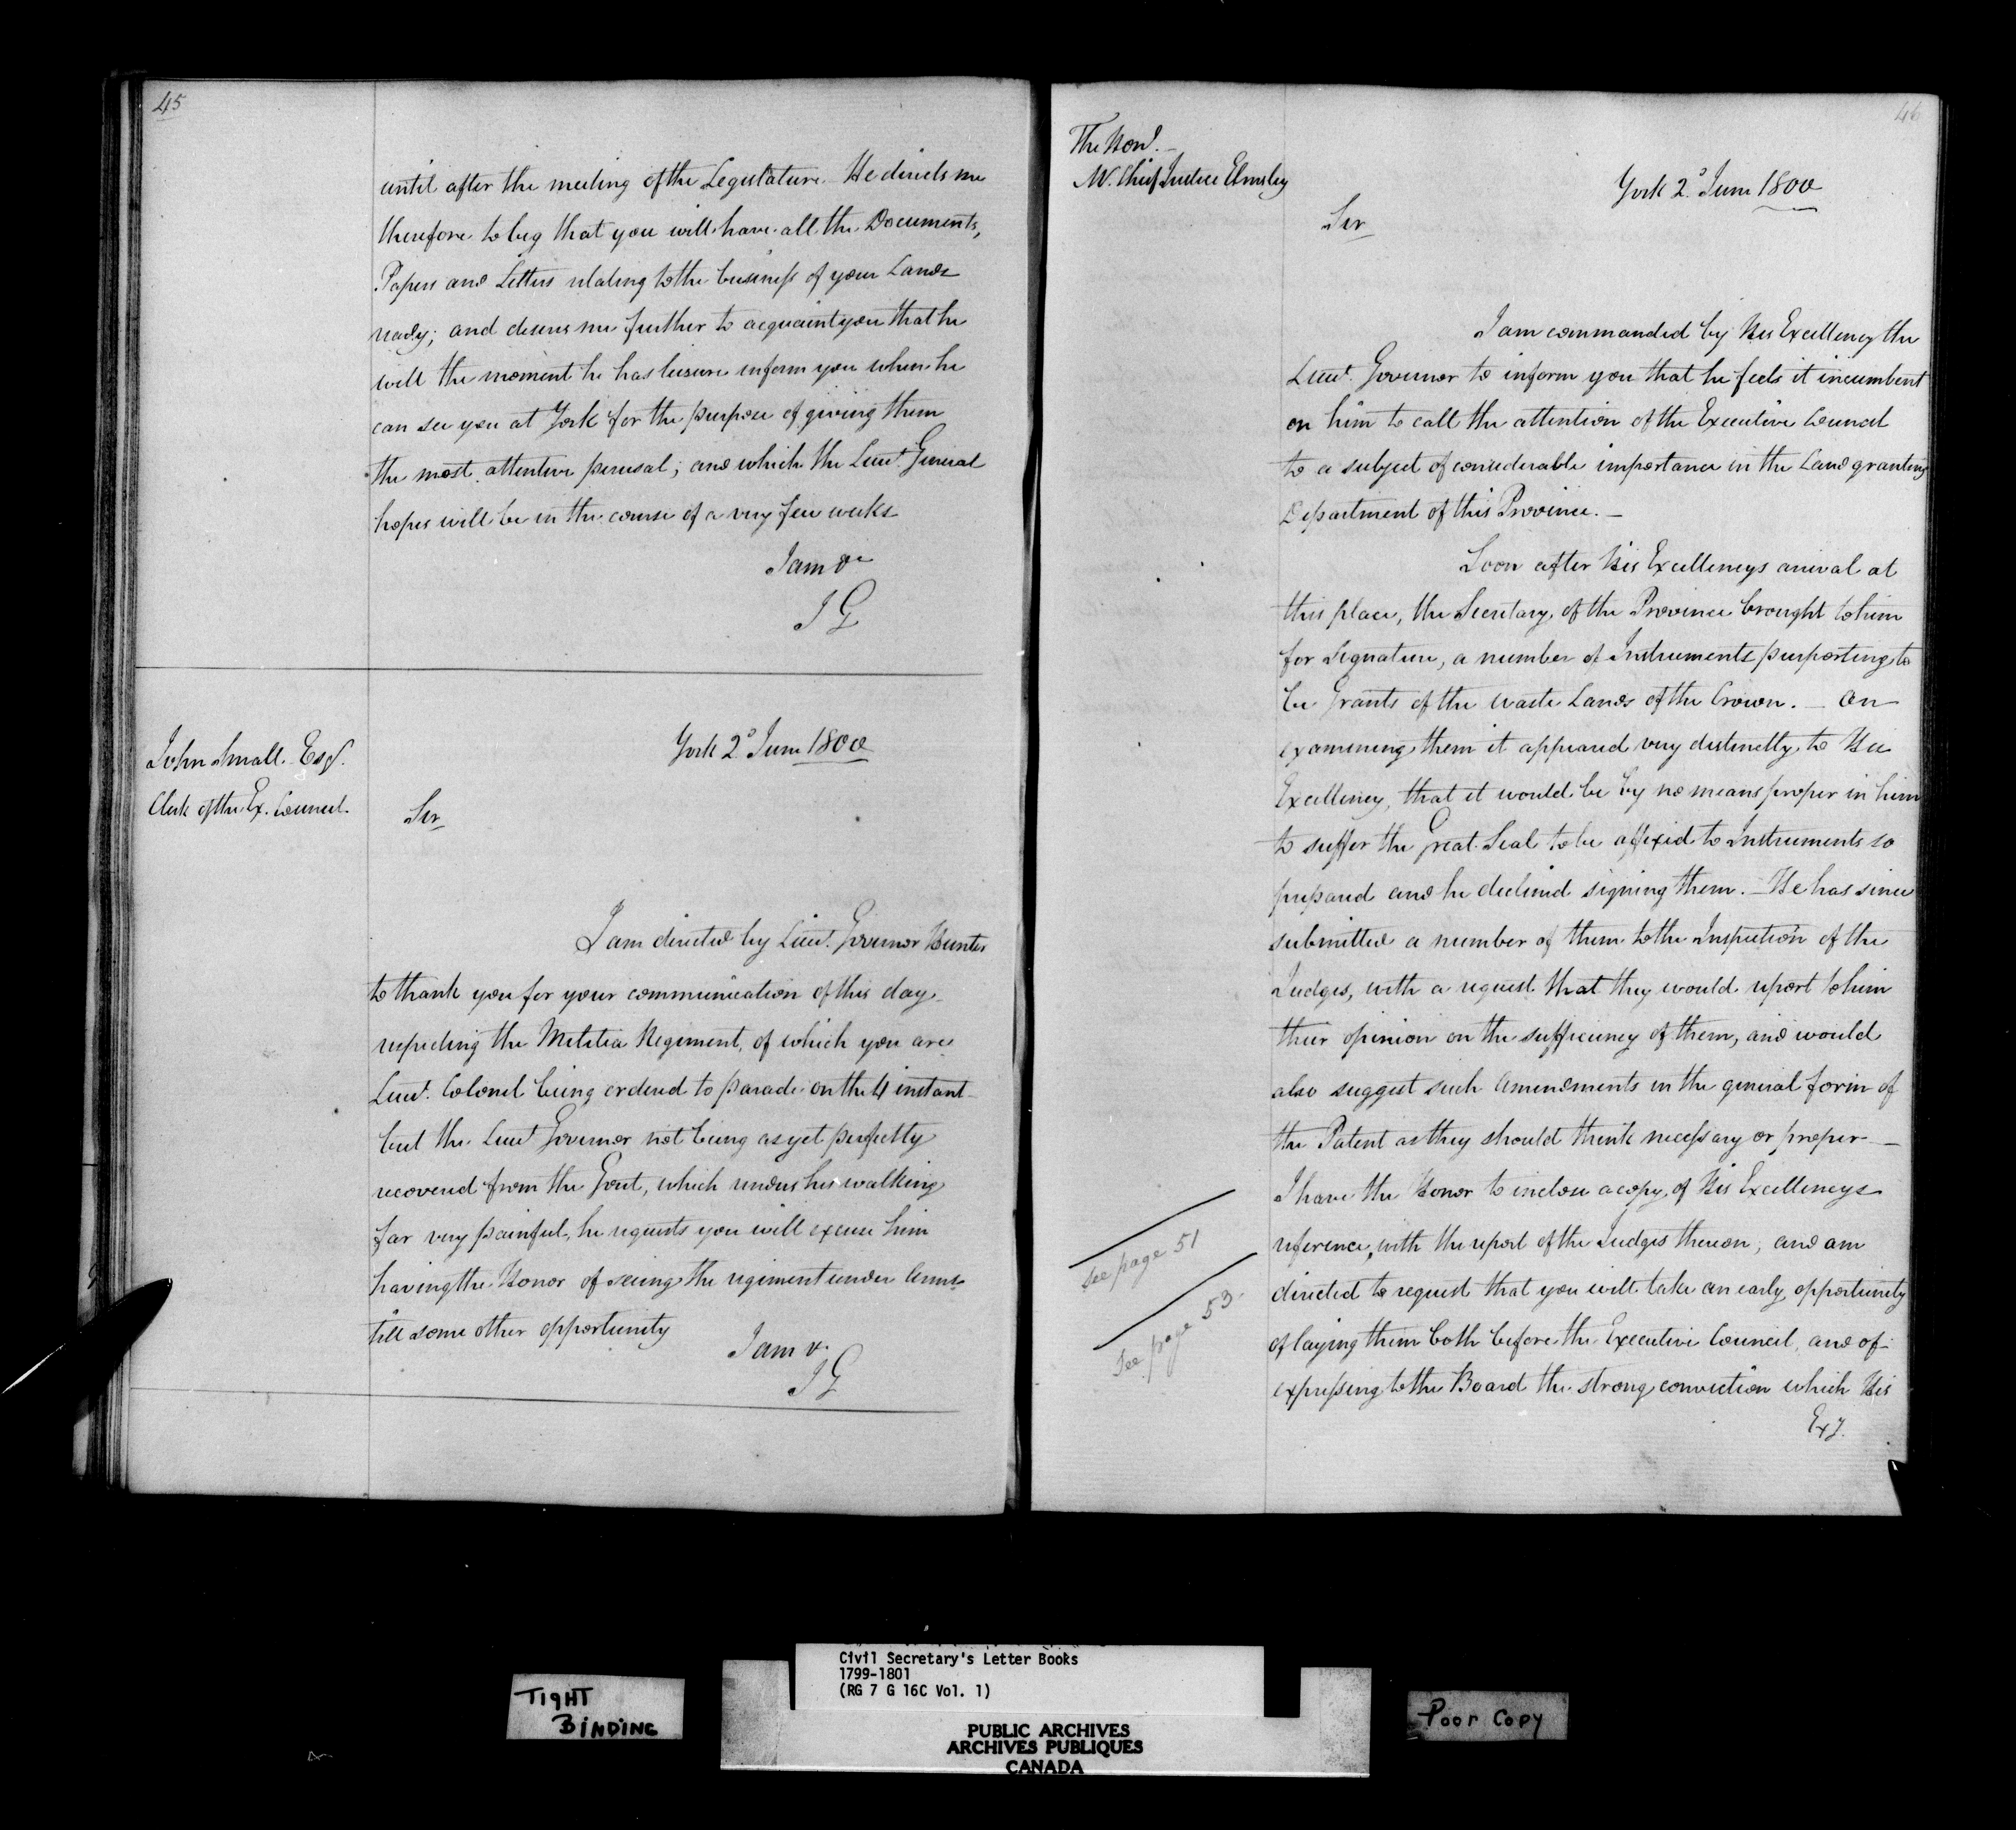 45
until after the meeting of the Legislature. He directs me
therefore to beg that you will have all the Documents,
Papers and Letters relating to the business of your Lands
ready; and desires me further to acquaint you that he
will the moment he has leisure inform you when he
can see you at York for the purpose of giving them
the most attentive perusal; and which the Lieut. General
hopes will be in the course of a very few weeks
I am &c
J G
John Small Esqr.
Clerk of the Ex. Council.
York 2d June 1800
Sir
I am directed by Lieut. Governor Hunter
to thank you for your communication of this day
respecting the Militia Regiment, of which you are
Lieut. Colonel being ordered to parade on the 4 instant
but the Lieut Governor not being as yet perfectly
recovered from the Gout, which renders his walking
far very painful, he requests you will excuse him
having the Honor of seeing the regiment under Arms
till some other opportunity
I am &.
J G
46
The Honl.
Mr. Chief Justice Elmsley
York 2d June 1800
Sir
I am commanded by His Excellency the
Lieut. Governor to inform you that he feels it incumbent
on him to call the attention of the Executive Council
to a subject of considerable importance in the Land granting
Department of this Province.
Soon after His Excellencys arrival at
this place, the Secretary of the Province brought to him
for Signature, a number of Instruments purporting to
be Grants of the waste Lands of the Crown. — On
examining them it appeared very distinctly to His
Excellency, that it would be by no means proper in him
to suffer the Great Seal to be affixed to Instruments so
prepared and he declined signing them. — He has since
submitted a number of them to the Inspection of the
Judges, with a request that they would report to him
their opinion on the sufficiency of them, and would
also suggest such Amendments in the general form of
the Patent as they should think necessary or proper —
I have the Honor to inclose a copy of His Excellencys
reference, with the report of the Judges thereon, and am
directed to request that you will take an early opportunity
of laying them both before the Executive Council, and of
expressing to the Board the strong conviction which His
Exy.
See page 51
See page 53
TIGHT
BINDING
Civil Secretary's Letter Books
1799-1801
(RG 7 G 16C Vol. 1)
PUBLIC ARCHIVES
ARCHIVES PUBLIQUES
CANADA
Poor Copy